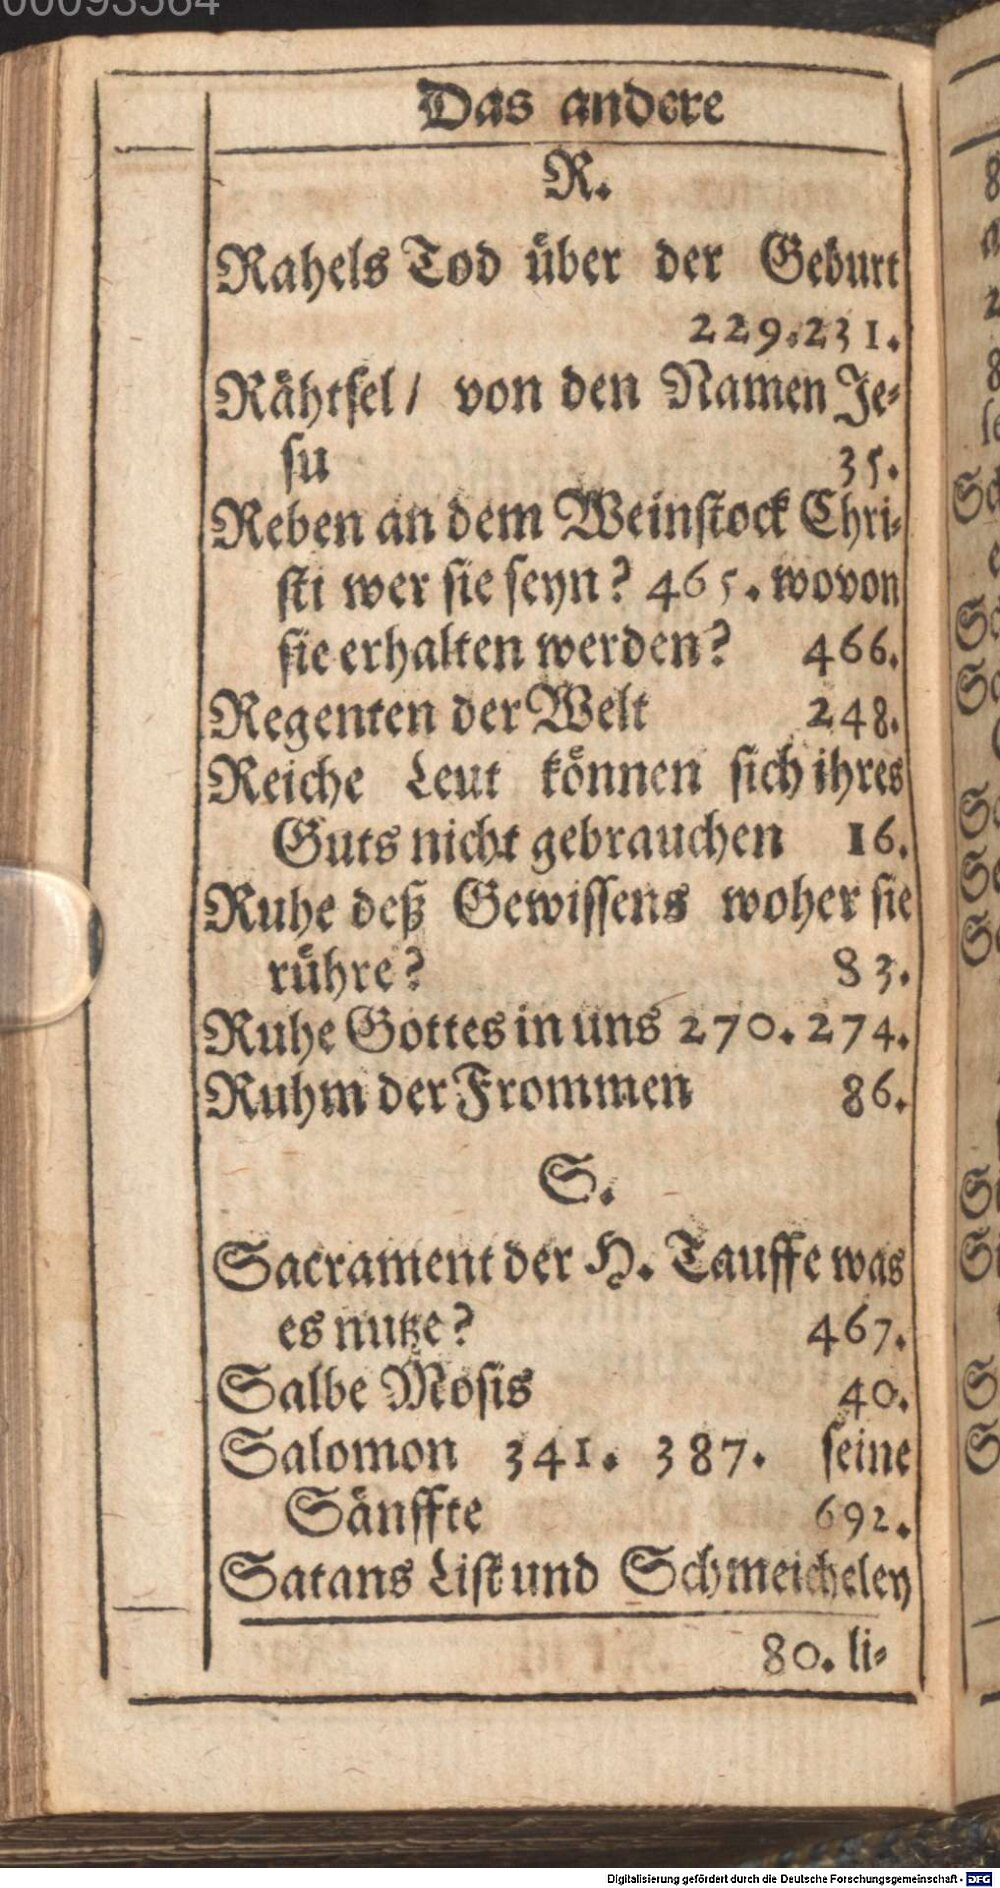 Das andere
R.
Rahels Tod über der Geburt
229.231.
Rähtsel/ von den Namen Je-
su 35.
Reben an dem Weinstock Chri-
sti wer sie seyn? 465. wovon
sie erhalten werden? 466.
Regenten der Welt 248.
Reiche Leut können sich ihres
Guts nicht gebrauchen 16.
Ruhe deß Gewissens woher sie
rühre? 83.
Ruhe Gottes in uns 270. 274.
Ruhm der Frommen 86.
S.
Sacrament der H. Tauffe was
es nutze? 467.
Salbe Mosis 40.
Salomon 341. 387. seine
Sänffte 692.
Satans List und Schmeicheley
80. li-
Digitalisierung gefördert durch die Deutsche Forschungsgemeinschaft - DFG